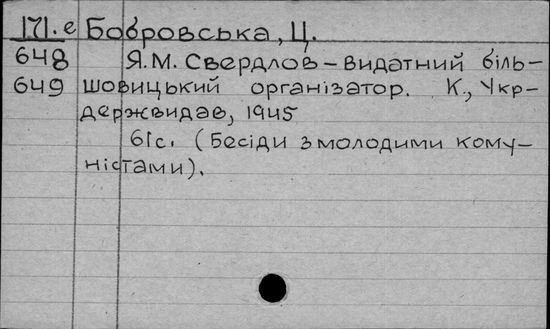 171.е Бобровська, Ц.
648 Я.М. Свердлов – видатний біль-
649 шовицький організатор. К., Укр-
держвидав, 1945
61с. (Бесіди з молодими кому-
ністами).